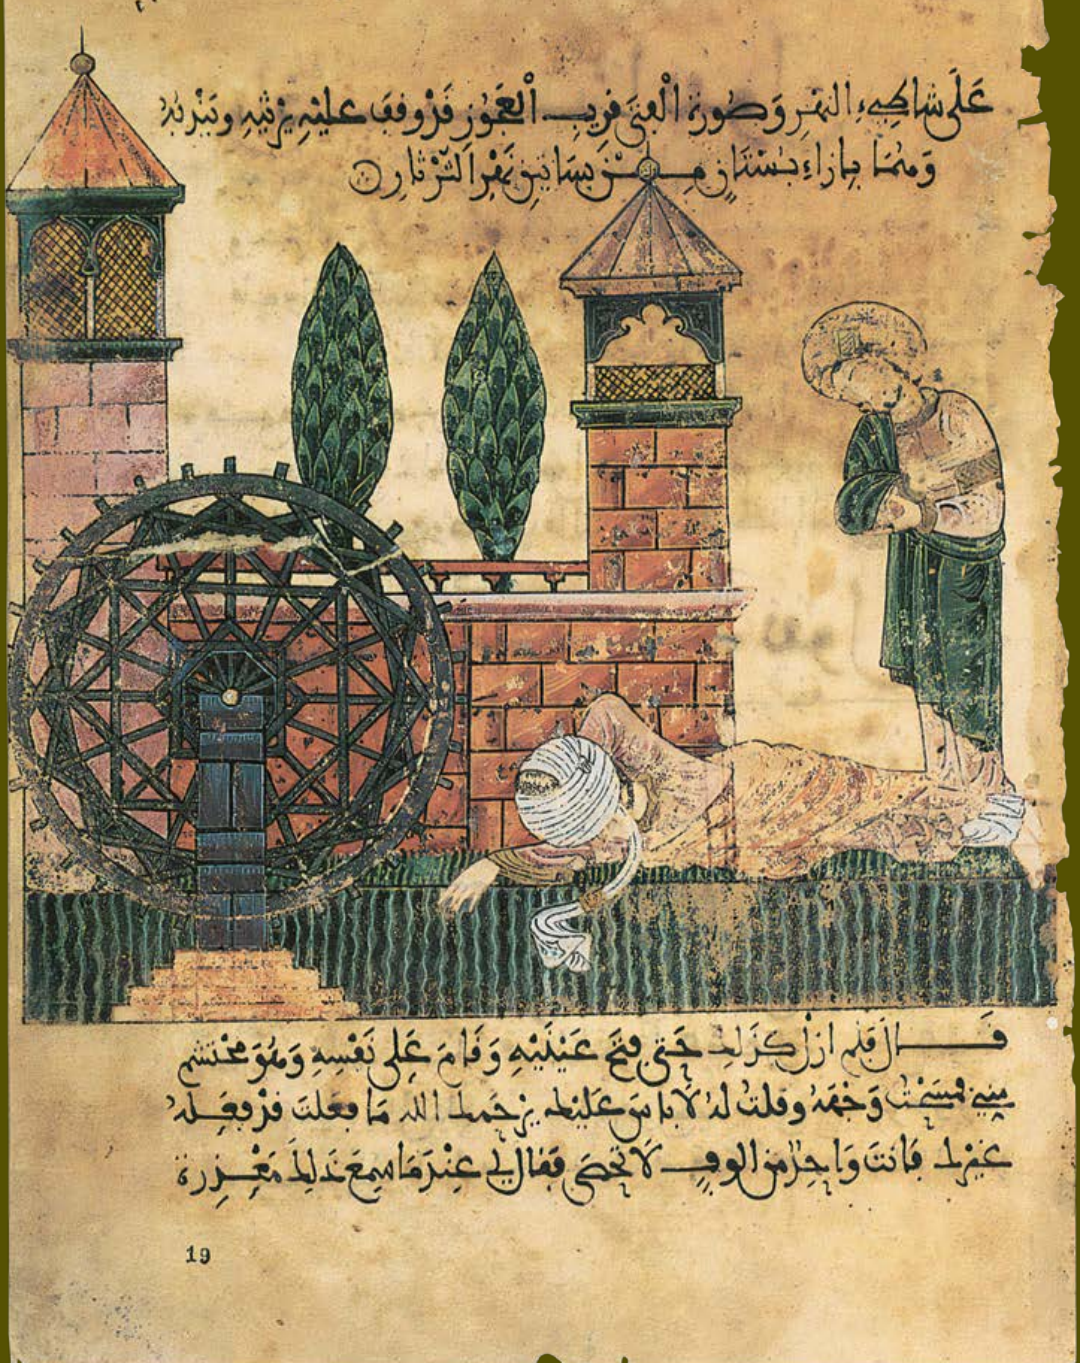 عَلَى شاطىءِ النهْرِ وَصُورة الْفتى قريب الْعَجُوزِ قَدْ وقف عليْهِ يرْثيهِ ويَنْدبُهُ
وَهُمَا بإزاءِ بُسْتَانٍ مِنْ بسَاتينِ نَهْرِ الثّرْثارِ
قَال فلم ازلْ كذلك حَتى فتحَ عَيْنَيْهِ وَقَامَ عَلى نَفْسِهِ وَهُوَ مُحْتشم
مِني فمَسَحْتُ وَجْهَهُ وقلتُ لهُ لَا باسَ عَليْك يرْحمك الله مَا فعلتَ قدْ فعَله
غيْرك فانتَ وَاحِدٌ من الوفٍ لَا تحْصَى فقال لي عِنْدَ مَا سمِعَ ذلِك مَعْذِرة
19